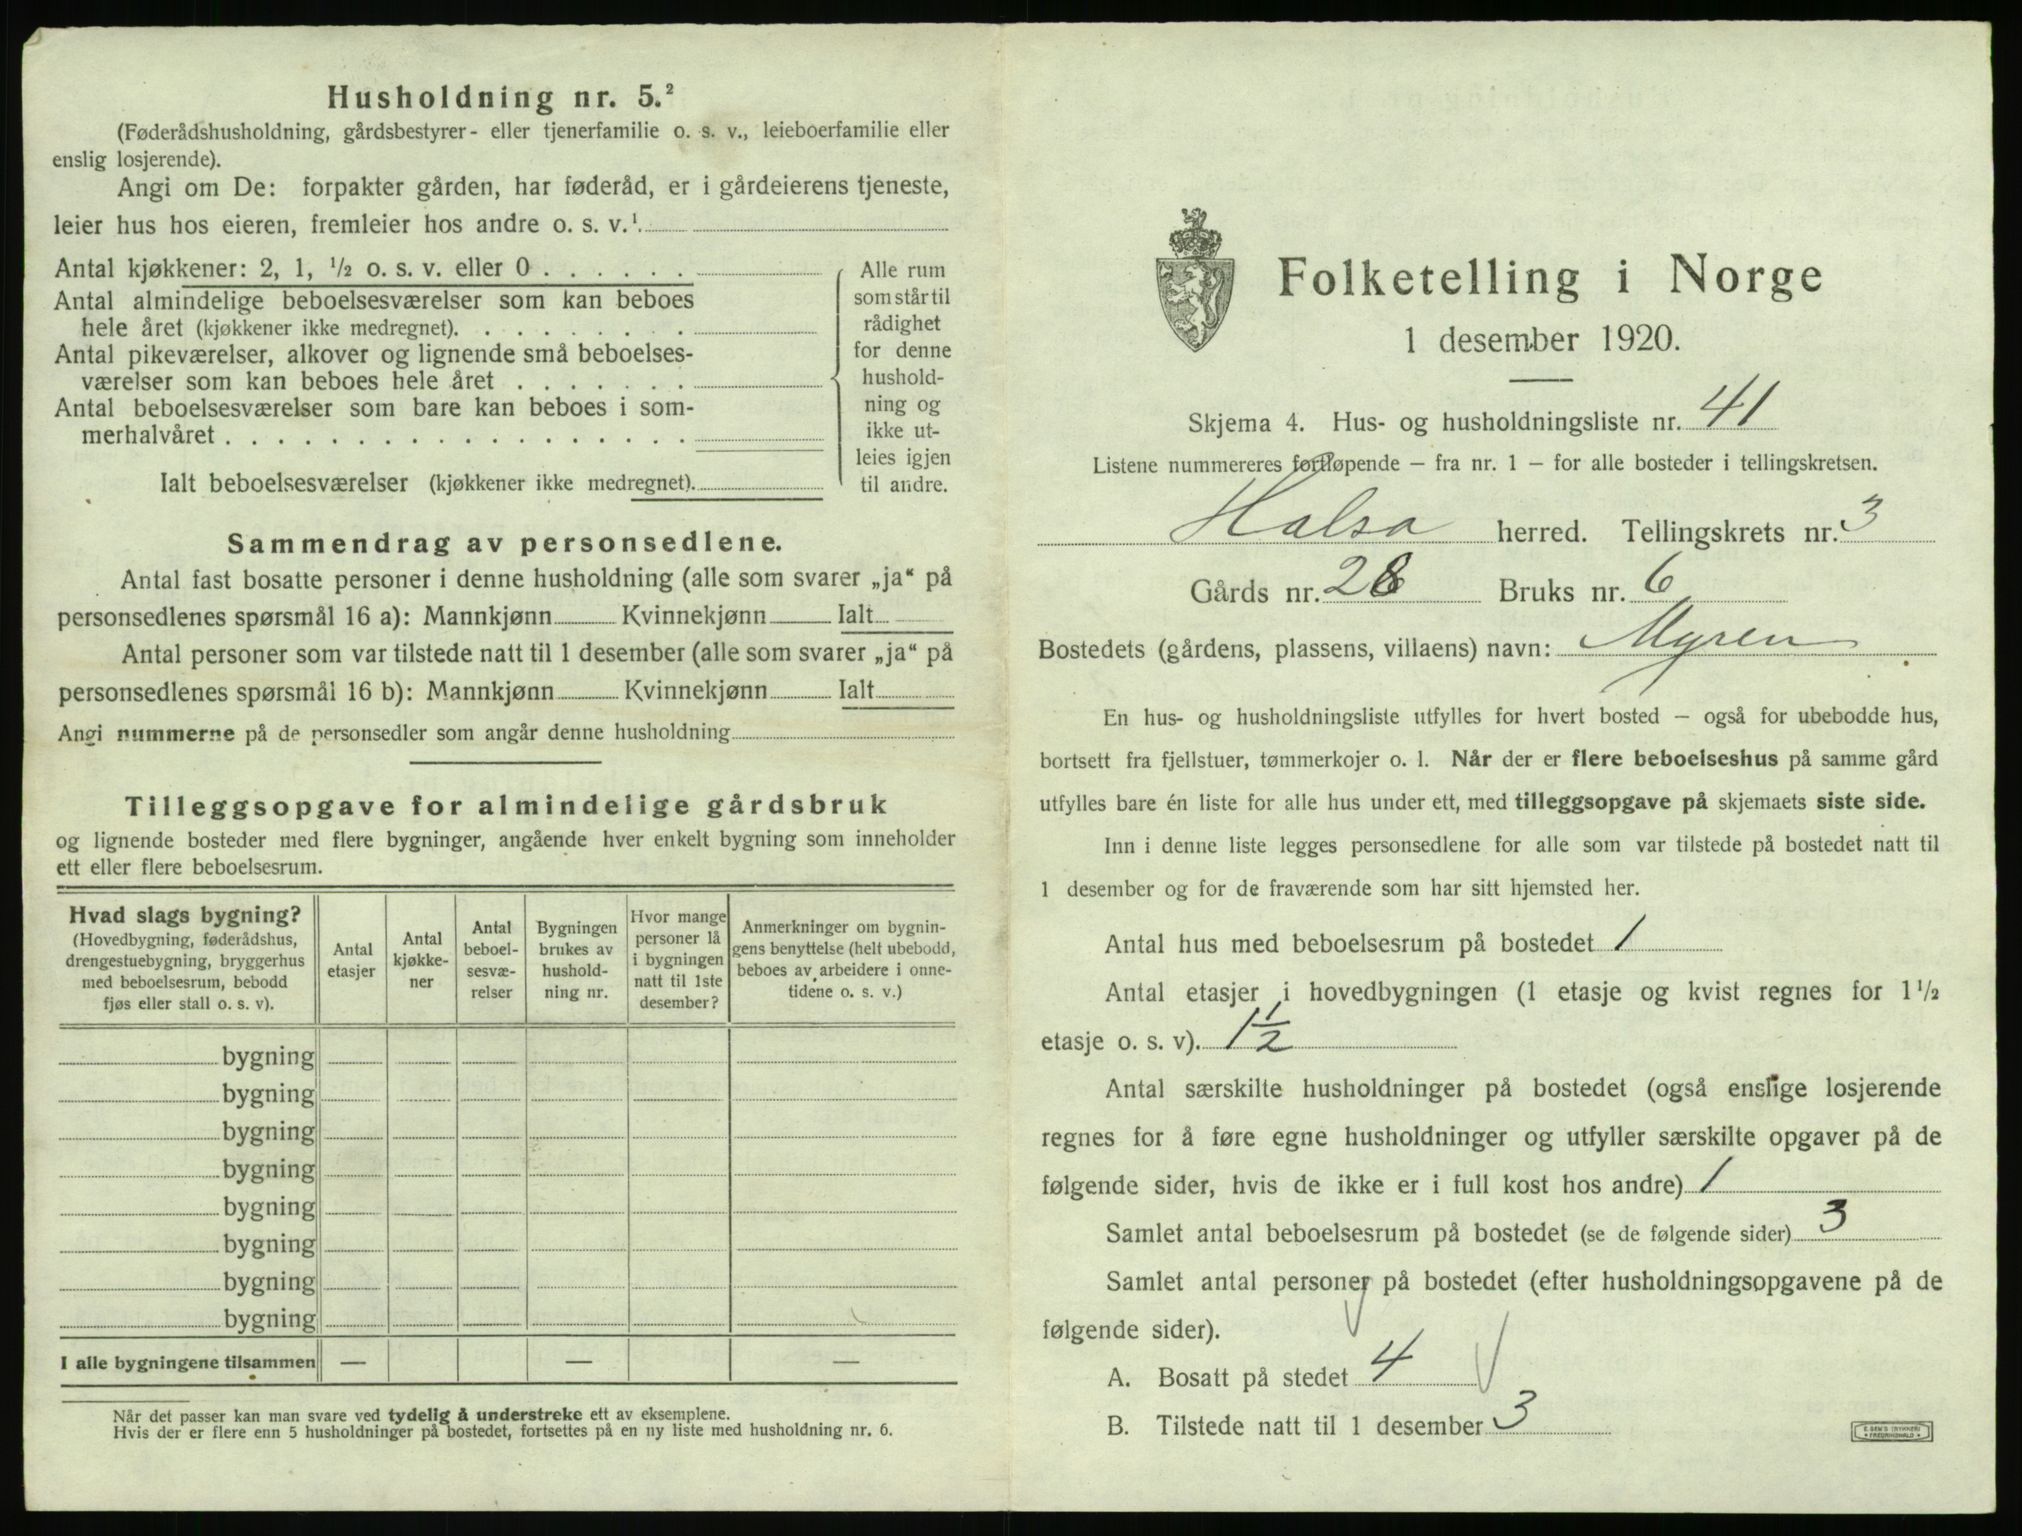 Husholdning nr. 5.²
(Føderådshusholdning, gårdsbestyrer- eller tjenerfamilie o. s. v., leieboerfamilie eller
enslig losjerende).
Angi om De: forpakter gården, har føderåd, er i gårdeierens tjeneste,
leier hus hos eieren, fremleier hos andre o. s. v.¹
Antal kjøkkener: 2, 1, ½ o. s. v. eller 0
Antal almindelige beboelsesværelser som kan beboes
hele året (kjøkkener ikke medregnet).
Antal pikeværelser, alkover og lignende små beboelses-
værelser som kan beboes hele året
Antal beboelsesværelser som bare kan beboes i som-
merhalvåret
Ialt beboelsesværelser (kjøkkener ikke medregnet).
Alle rum
som står til
rådighet
for denne
hushold-
ning og
ikke ut-
leies igjen
til andre.
Sammendrag av personsedlene.
Antal fast bosatte personer i denne husholdning (alle som svarer „ja" på
personsedlenes spørsmål 16 a): Mannkjønn Kvinnekjønn Ialt
Antal personer som var tilstede natt til 1 desember (alle som svarer „ja" på
personsedlenes spørsmål 16 b): Mannkjønn Kvinnekjønn Ialt
Angi nummerne på de personsedler som angår denne husholdning
Tilleggsopgave for almindelige gårdsbruk
og lignende bosteder med flere bygninger, angående hver enkelt bygning som inneholder
ett eller flere beboelsesrum.
Hvad slags bygning?
(Hovedbygning, føderådshus,
drengestuebygning, bryggerhus
med beboelsesrum, bebodd
fjøs eller stall o. s. v).
Antal
etasjer
Antal
kjøkke-
ner
Antal
beboel-
sesvæ-
relser
Bygningen
brukes av
hushold-
ning nr.
Hvor mange
personer lå
i bygningen
natt til 1ste
desember?
Anmerkninger om bygnin-
gens benyttelse (helt ubebodd,
beboes av arbeidere i onne-
tidene o. s. v.)
bygning
bygning
bygning
bygning
bygning
bygning
bygning
bygning
I alle bygningene tilsammen — — —
Når det passer kan man svare ved tydelig å understreke ett av eksemplene.
Hvis der er flere enn 5 husholdninger på bostedet, fortsettes på en ny liste med husholdning nr. 6.
Folketelling i Norge
1 desember 1920.
Skjema 4. Hus- og husholdningsliste nr. 41
Listene nummereres fortløpende – fra nr. 1 – for alle bosteder i tellingskretsen.
Halsa herred. Tellingskrets nr. 3
Gårds nr. 28 Bruks nr. 6
Bostedets (gårdens, plassens, villaens) navn: Myren
En hus- og husholdningsliste utfylles for hvert bosted – også for ubebodde hus,
bortsett fra fjellstuer, tømmerkojer o. l. Når der er flere beboelseshus på samme gård
utfylles bare én liste for alle hus under ett, med tilleggsopgave på skjemaets siste side.
Inn i denne liste legges personsedlene for alle som var tilstede på bostedet natt til
1 desember og for de fraværende som har sitt hjemsted her.
Antal hus med beboelsesrum på bostedet 1
Antal etasjer i hovedbygningen (1 etasje og kvist regnes for 1½
etasje o. s. v). 1½
Antal særskilte husholdninger på bostedet (også enslige losjerende
regnes for å føre egne husholdninger og utfyller særskilte opgaver på de
følgende sider, hvis de ikke er i full kost hos andre) 1
Samlet antal beboelsesrum på bostedet (se de følgende sider) 3
Samlet antal personer på bostedet (efter husholdningsopgavene på de
følgende sider).
A. Bosatt på stedet 4
B. Tilstede natt til 1 desember 3